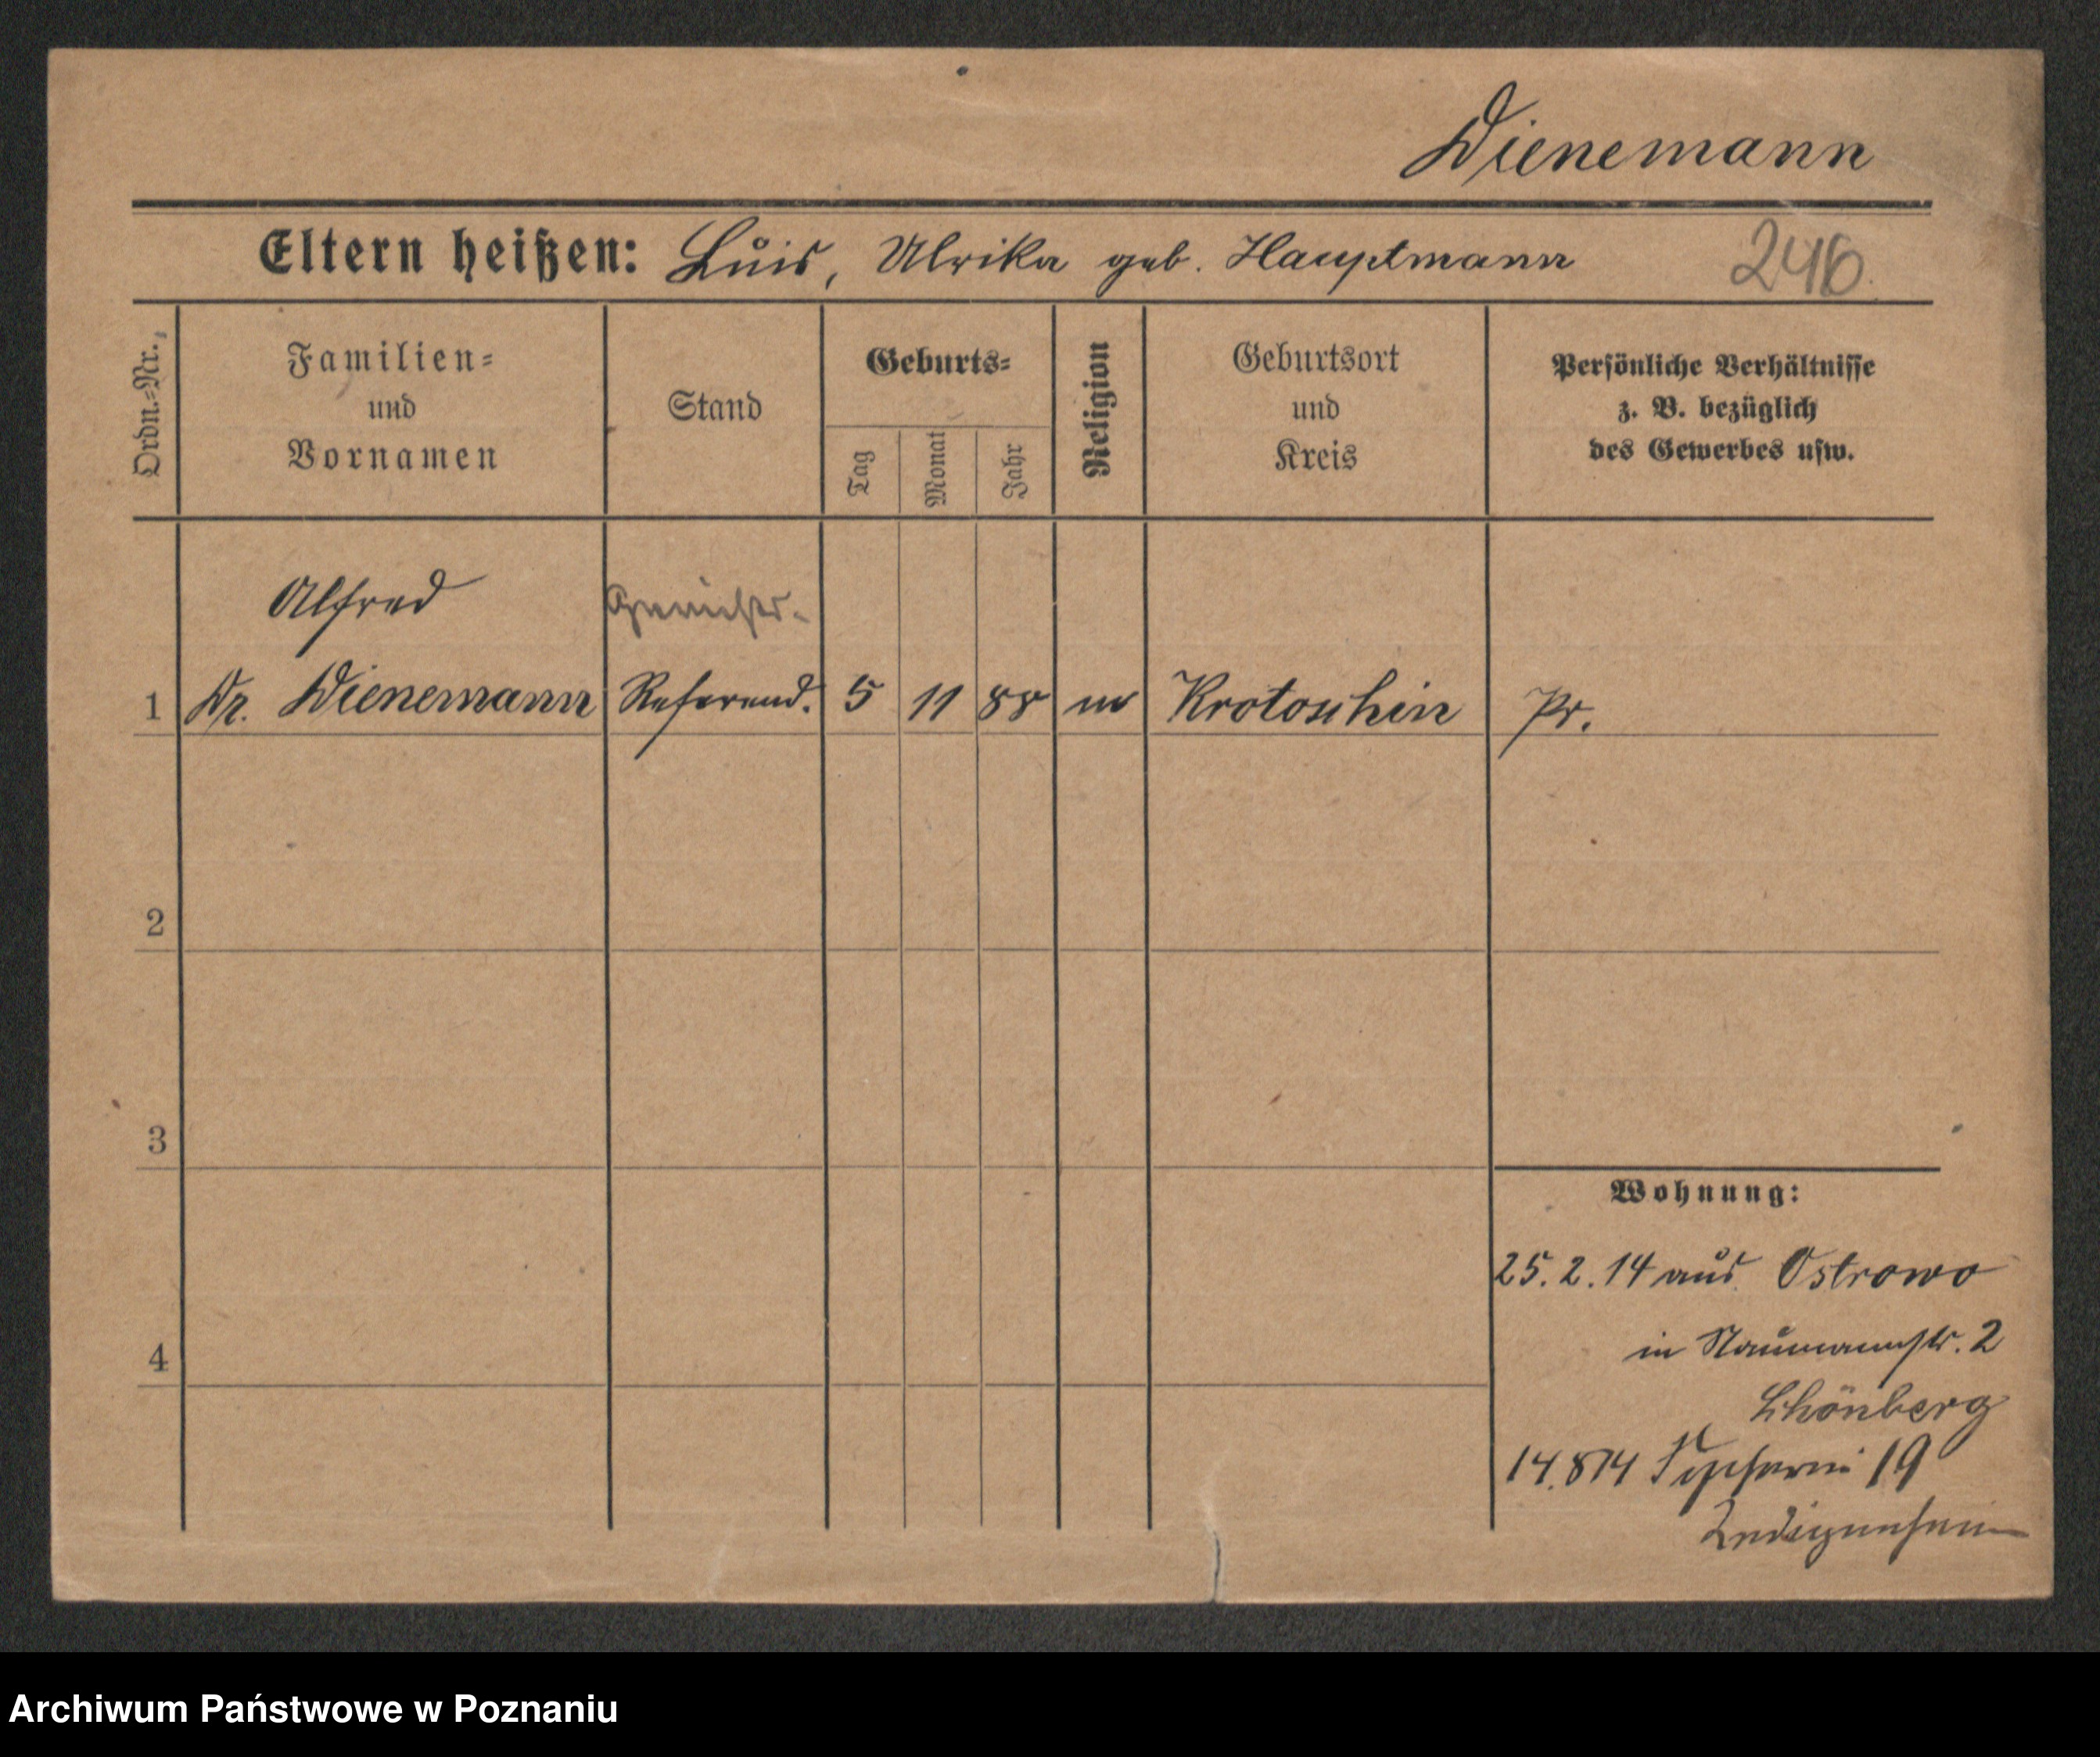 Dienemann
Eltern heißen: Luis, Ulrika geb. Hauptmann 246
Ordn.-Nr.,
Familien-
und
Vornamen
Stand
Geburts-
Tag
Monat
Jahr
Religion
Geburtsort
und
Kreis
Persönliche Verhältnisse
z. B. bezüglich
des Gewerbes usw.
Alfred Gerichts-
1 Dr. Dienemann Referend. 5 11 88 m Krotoschin Pr.
2
3
4
Wohnung:
25.2.14 aus Ostrowo
in Naumannstr. 2
Schönberg
14.8 14 19
Archiwum Państwowe w Poznaniu